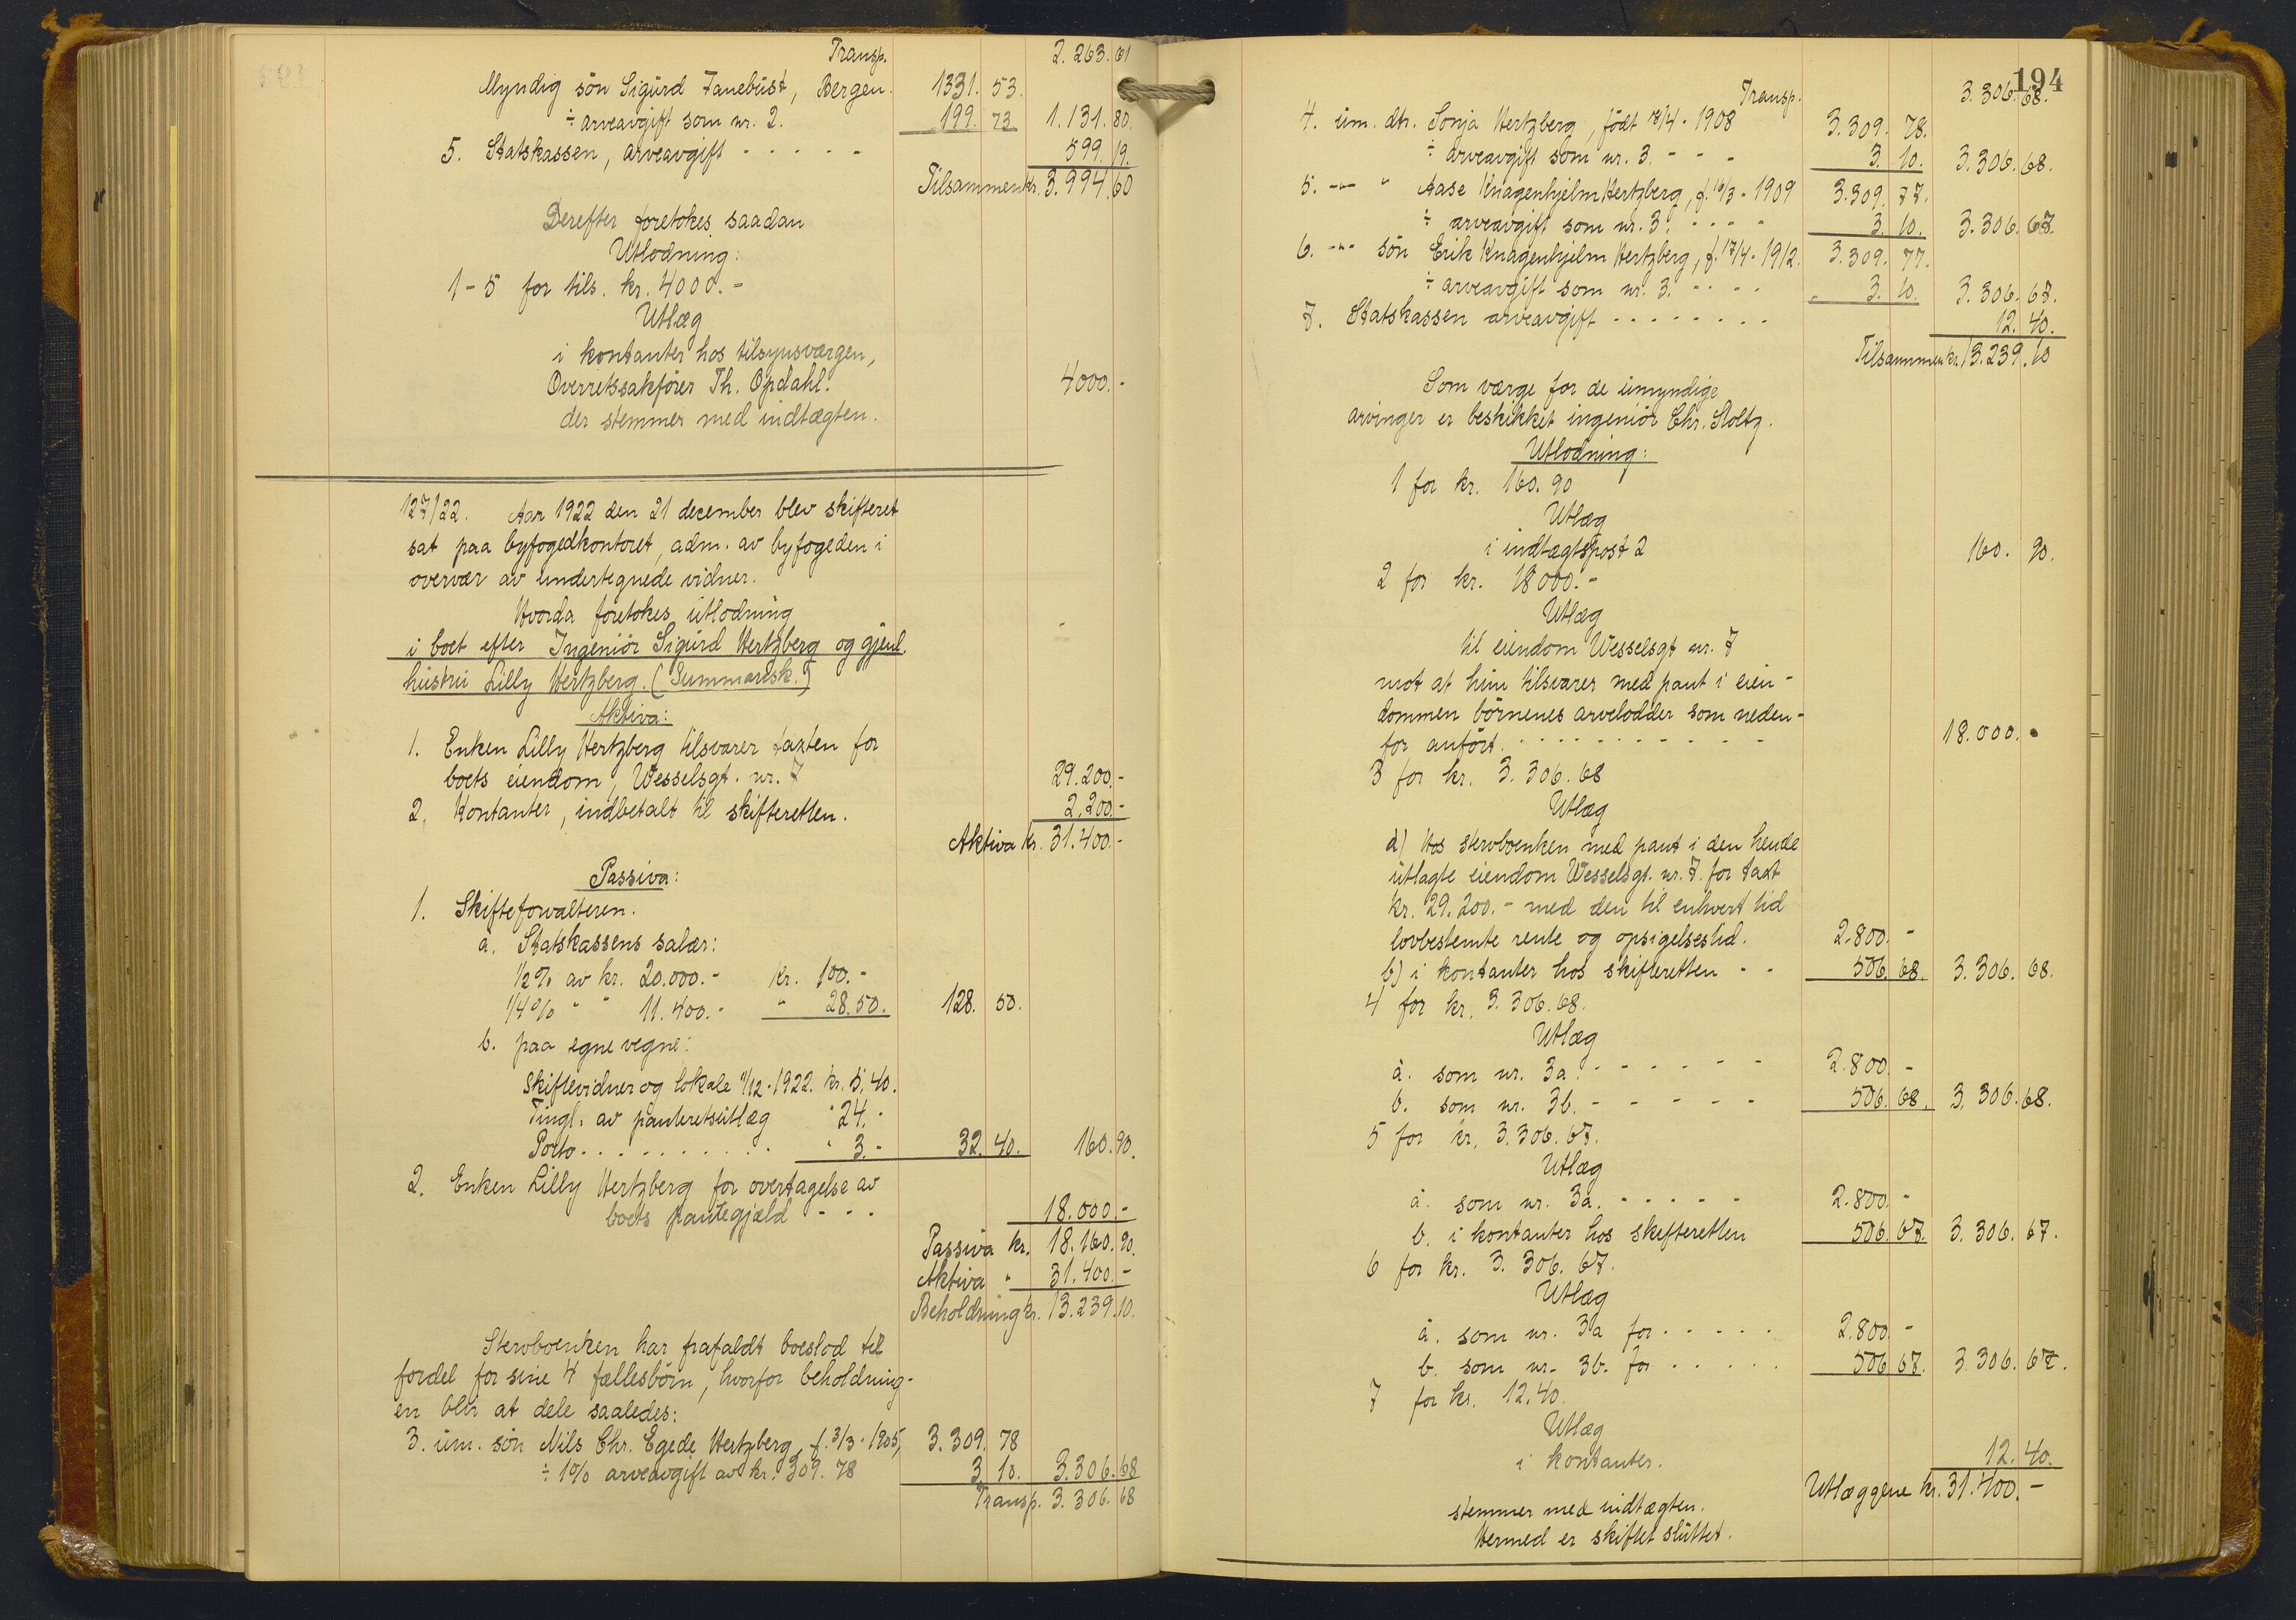 Transp. 2.263.61
Myndig søn Sigurd Fanebust, Bergen. 1331. 53.
÷ arveavgift som nr. 2. 199. 73 1.131. 80.
5. Statskassen, arveavgift - - - - - 599. 19.
Tilsammen kr. 3.994.60
Derefter foretokes saadan
Utlodning:
1-5 for tils. kr. 4000.-
Utlæg
i kontanter hos tilsynsværgen,
Overretssakfører Th. Opdahl. 4000.-
der stemmer med indtægten.
127/22. Aar 1922 den 21 december blev skifteret
sat paa byfogedkontoret, adm. av byfogeden i
overvær av undertegnede vidner.
Hvorda foretokes utlodning
i boet efter Ingeniør Sigurd Hertzberg og gjenl.
hustru Lilly Hertzberg. (Summarisk.)
Aktiva:
1. Enken Lilly Hertzberg tilsvarer taxten for
boets eiendom, Wesselsgt. nr. 7 29.200.-
2. Kontanter, indbetalt til skifteretten. 2.200.-
Aktiva kr. 31.400.-
Passiva:
1. Skifteforvalteren.
a. Statskassens salær:
1/2% av kr. 20.000.- kr. 100.-
1/4% " " 11.400.- " 28.50. 128. 50.
b. paa egne vegne:
Skiftevidner og lokale 11/12.1922. kr. 5.40.
Tingl. av panteretsutlæg " 24.-
Porto . . . . . . . . . . " 3.- 32.40. 160.90.
2. Enken Lilly Hertzberg for overtagelse av
boets pantegjæld - - - 18.000.-
Passiva kr. 18.160.90.
Aktiva " 31.400.-
Beholdning kr. 13.239.10.
Stervboenken har frafaldt boeslod til
fordel for sine 4 fællesbørn, hvorfor beholdning-
en blir at dele saaledes:
3. um. søn Nils Chr. Egede Hertzberg, f. 3/3.1905, 3.309. 78
÷ 1% arveavgift av kr. 309. 78 3. 10. 3.306.68
Transp. 3.306. 68
194
Transp. 3.306.68.
4. um. dtr. Sonja Hertzberg, født 18/4.1908 3.309. 78.
÷ arveavgift som nr. 3. - - - 3. 10. 3.306. 68.
5. -"- " Aase Knagenhjelm Hertzberg, f. 16/3.1909 3.309. 77.
÷ arveavgift som nr. 3. - - - - 3. 10. 3.306. 67.
6. -"- søn Erik Knagenhjelm Hertzberg, f. 17/4.1912. 3.309. 77.
÷ arveavgift som nr. 3. - - - - 3. 10. 3.306. 67.
7. Statskassen arveavgift - - - - - - - - 12. 40.
Tilsammen kr. 13.239.10
Som værge for de umyndige
arvinger er beskikket ingeniør Chr. Stoltz.
Utlodning:
1 for kr. 160.90
Utlæg
i indtægtspost 2 160. 90.
2 for kr. 18000.-
Utlæg
til eiendom Wesselsgt nr. 7
mot at hun tilsvarer med pant i eien-
dommen børnenes arvelodder som neden-
for anført. - - - - - - - - - - 18.000.-
3 for kr. 3.306.68
Utlæg
a) Hos stervboenken med pant i den hende
utlagte eiendom Wesselsgt. nr. 7. for taxt
kr. 29.200.- med den til enhvert tid
lovbestemte rente og opsigelsestid. 2.800.-
b) i kontanter hos skifteretten - - 506. 68. 3.306. 68.
4 for kr. 3.306.68.
Utlæg
a. som nr. 3a. - - - - - - 2.800.-
b. som nr. 3b. - - - - - - 506. 68. 3.306.68.
5 for kr. 3.306.67.
Utlæg
a. som nr. 3a. - - - - - 2.800.-
b. i kontanter hos skifteretten 506. 67. 3.306. 67.
6 for kr. 3.306. 67.
Utlæg
a. som nr. 3a for - - - - - 2.800.-
b. som nr. 3b. for - - - - - 506. 67. 3.306. 67.
7 for kr. 12.40.
Utlæg
i kontanter. 12.40.
Utlæggene kr. 31.400.-
stemmer med indtægten.
Hermed er skiftet sluttet.